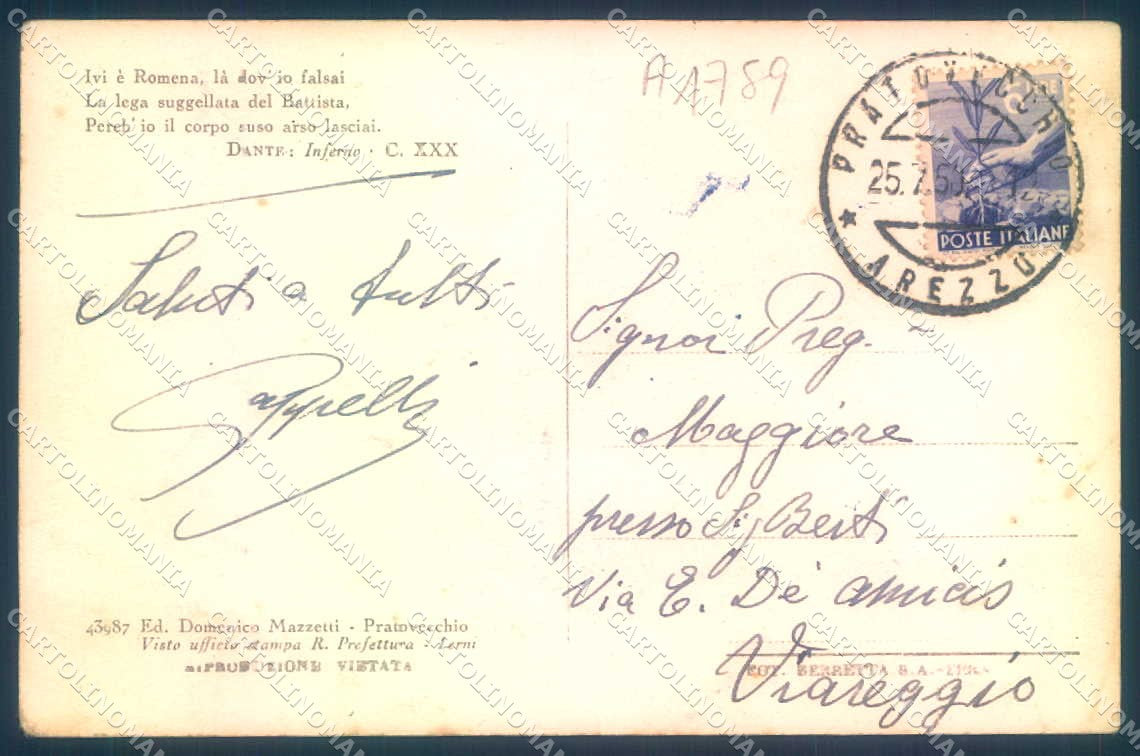 Ivi è Romena, là dov' io falsai
La lega suggellata del Battista,
Perch' io il corpo suso arso lasciai.
DANTE: Inferno · C. XXX
A 1789
PRATOVECCHIO
25.7.50
* AREZZO
POSTE ITALIANE
Saluti a tutti
Cappelli
Signor Preg.
Maggiore
presso Sig Berti
Via E. De amicis
Viareggio
43987 Ed. Domenico Mazzetti - Pratovecchio
Visto ufficio stampa R. Prefettura - Terni
RIPRODUZIONE VIETATA
BERRETTA S.A.
CARTOLINOMANIA